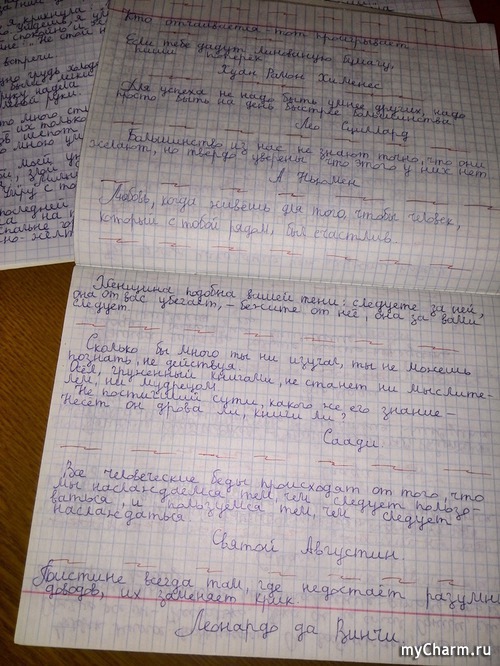 Кто отчаивается – тот проигрывает.
Если тебе дадут линованную бумагу,
пиши поперёк.
Хуан Рамон Хименес
Для успеха не надо быть умнее других, надо
просто быть на день быстрее большинства
Лео Сциллард
Большинство из нас не знают точно, что они
желают, но твёрдо уверены что этого у них нет
А Ньюмен
Любовь, когда живёшь для того, чтобы человек,
который с тобой рядом, был счастлив.
Женщина подобна вашей тени: следуете за ней,
она от вас убегает, – бежите от неё, она за вами
следует.
Сколько бы много ты ни изучал, ты не можешь
познать, не действуя.
Осёл, гружённый книгами, не станет ни мыслите-
лем, ни мудрецом
Не постигший сути, какого же его знание –
Несёт он дрова ли, книги ли?
Саади
Все человеческие беды происходят от того, что
мы наслаждаемся тем, чем следует пользо-
ваться, и пользуемся тем, чем следует
наслаждаться.
Святой Августин.
Поистине всегда там, где недостаёт разумн
доводов, их заменяет крик.
Леонардо да Винчи
myCharm.ru